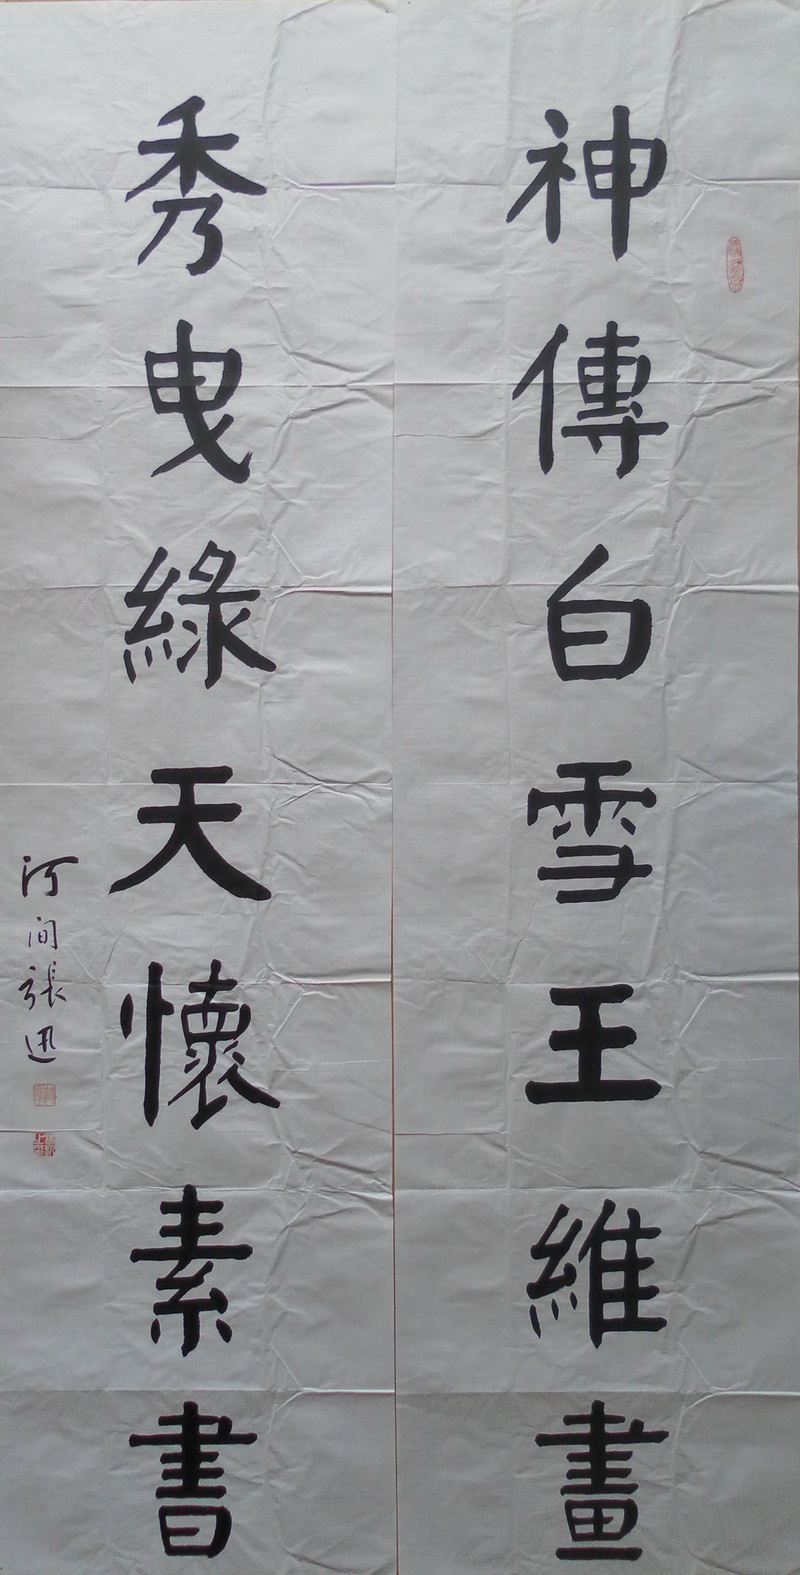 神傳白雪王維畫
秀曳綠天懷素書
河间張迅